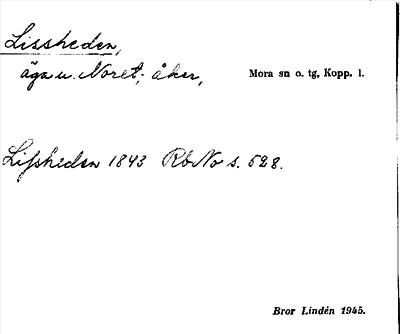 Lissheden,
äga u. Noret; åker, Mora sn o. tg, Kopp. l.
Lifsheden 1843 Rb No s. 528.
Bror Lindén 1945.